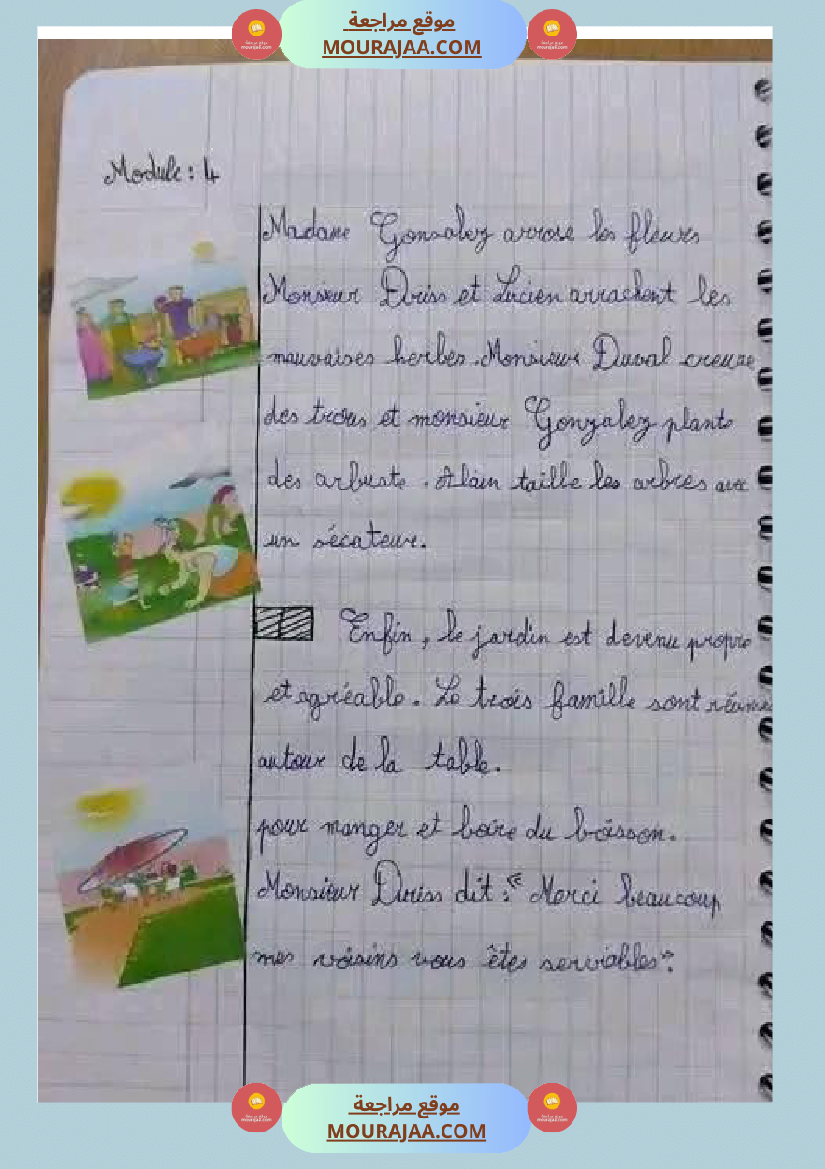 موقع مراجعة
MOURAJAA.COM
Module : 4
Madame Gonzalez arrose les fleurs
Monsieur Driss et Lucien arrachent les
mauvaises herbes. Monsieur Duval creuse
des trous et monsieur Gonzalez plante
des arbuste. Alain taille les arbres avec
un sécateur.
Enfin, le jardin est devenu propre
et agréable. Le trois famille sont réunies
autour de la table.
pour manger et boire du boisson.
Monsieur Driss dit : « Merci beaucoup
mes voisins vous êtes serviables ».
موقع مراجعة
MOURAJAA.COM